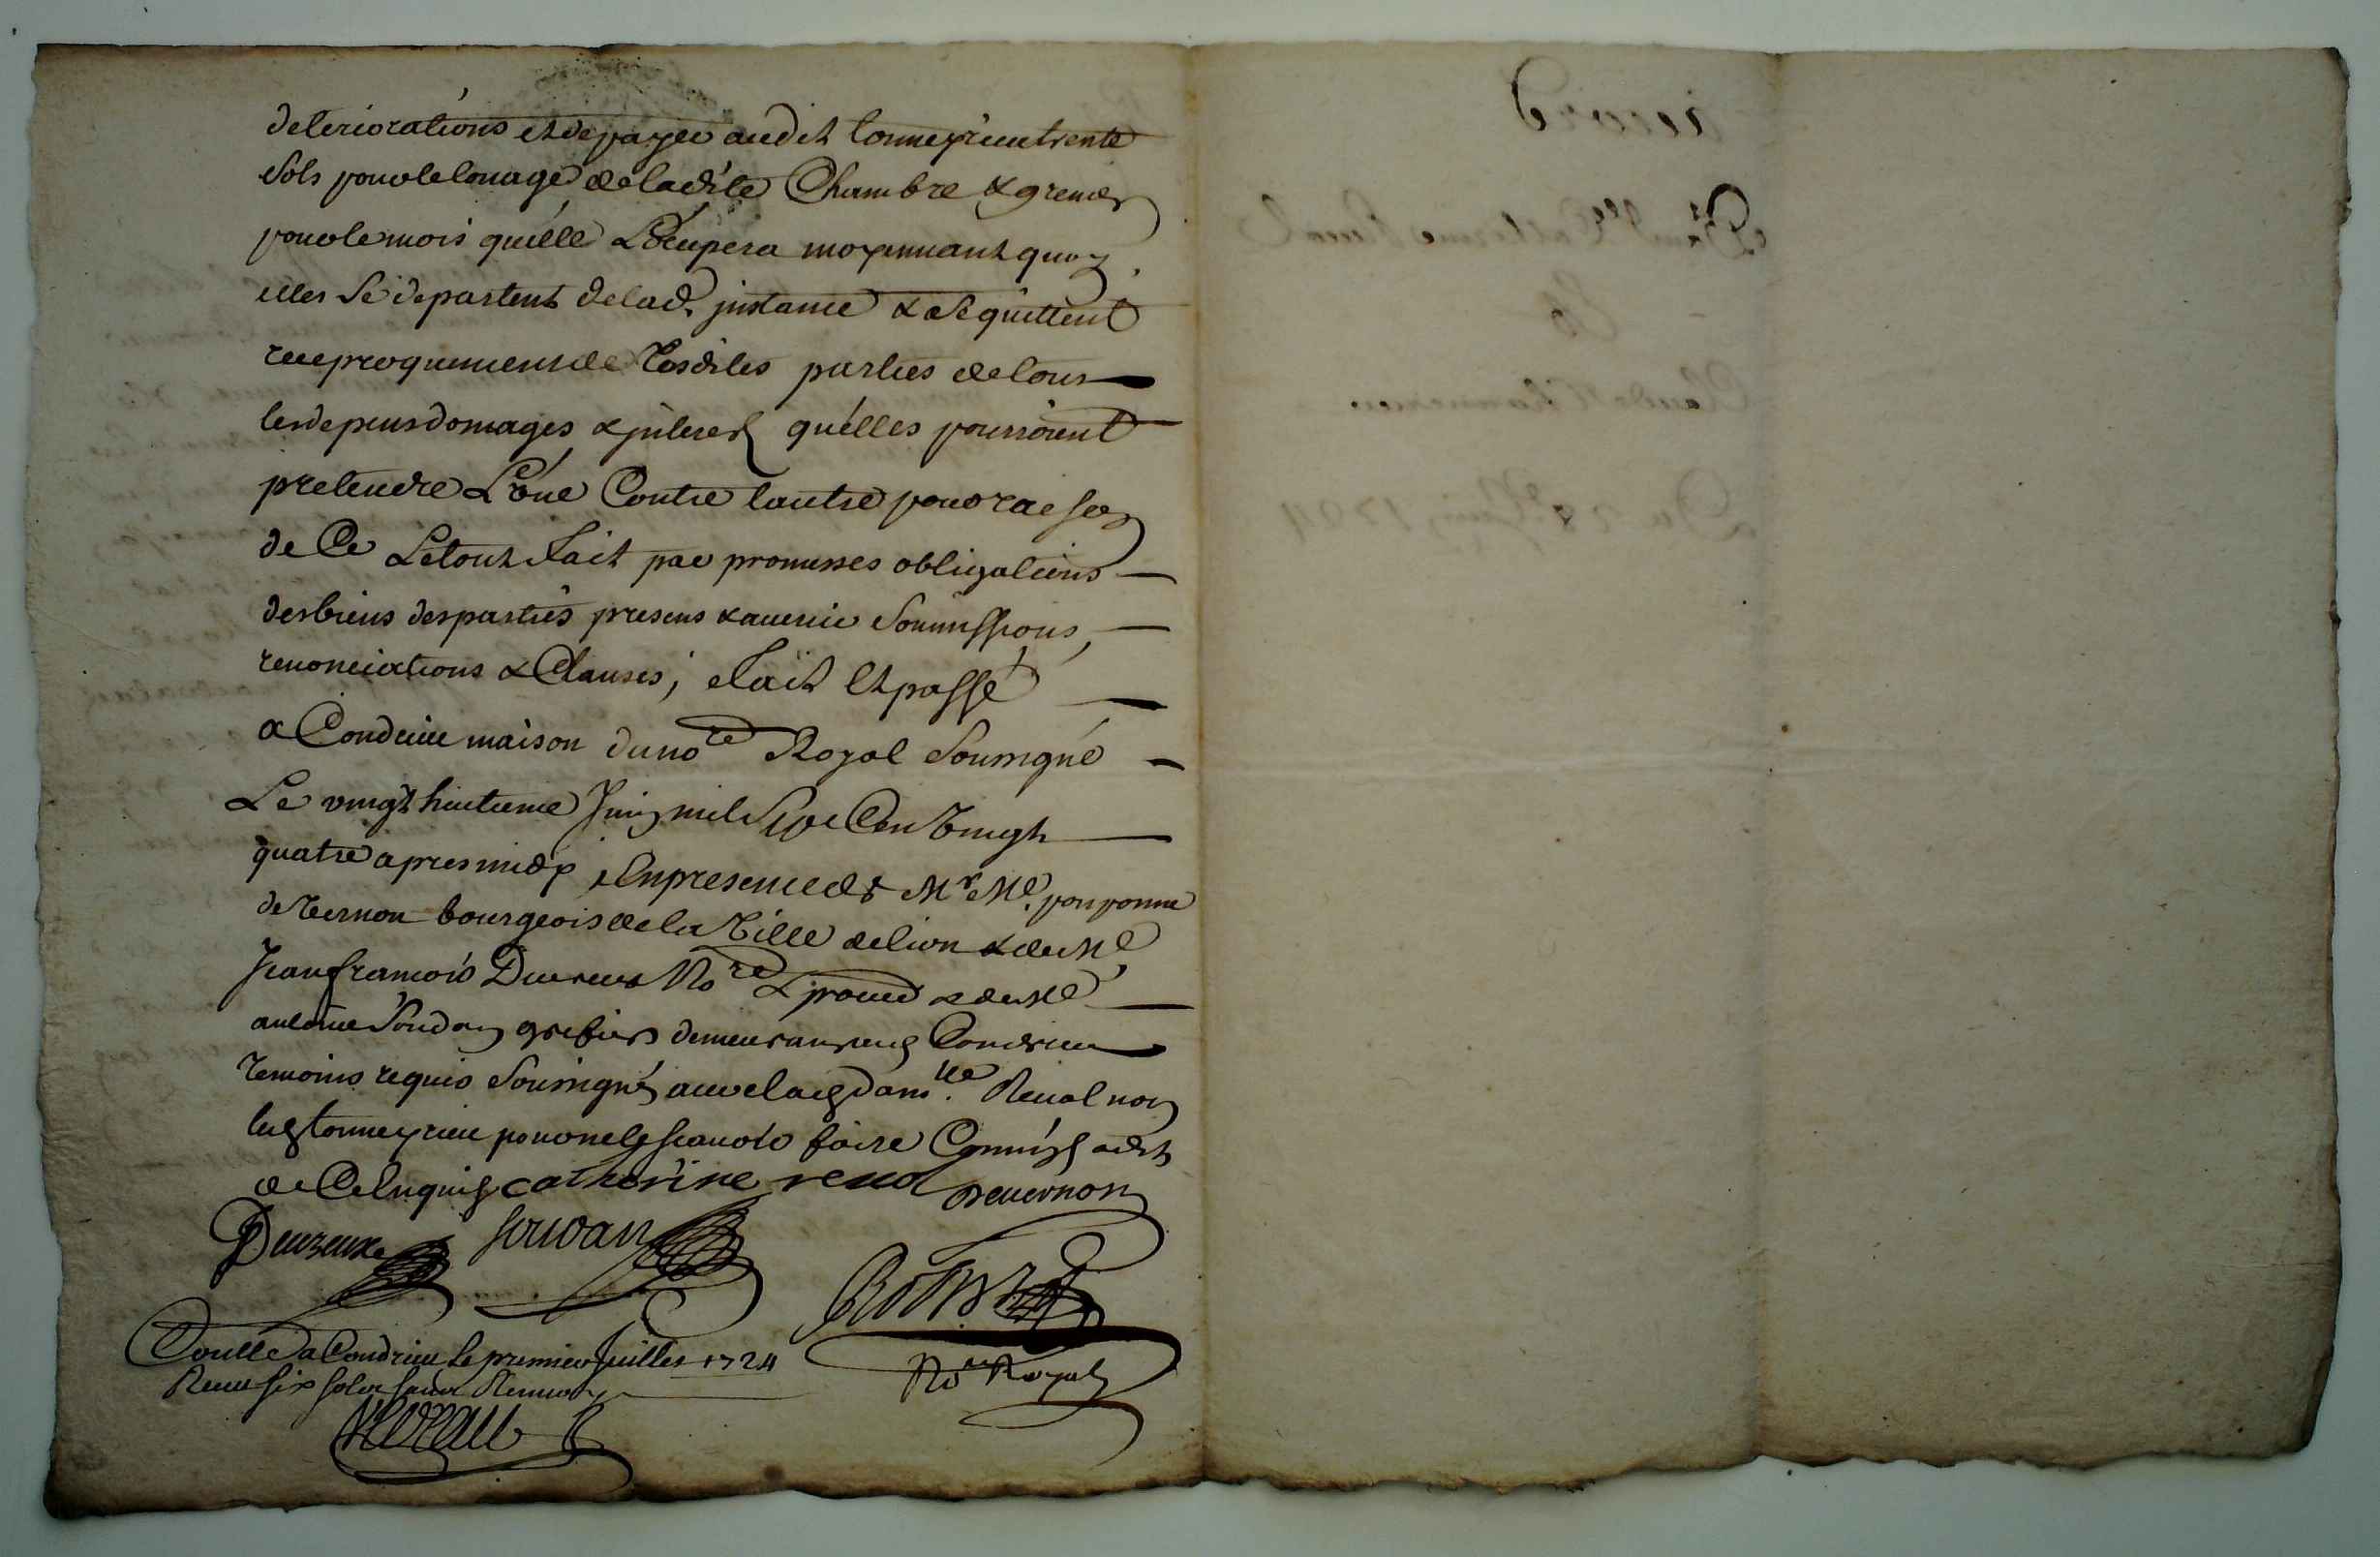 deteriorations et de payer audit Tonneyrieu trente
sols pour le louage de ladite Chambre & grenier
pour le mois quélle L'ocupera moyennant quoy
elles se departent de lad. instance & se quittent
reciproquement les dites parties de tous
les depens domages & interest quélles pourroient
pretendre L'une Contre lautre pour raison
de Ce Letout fait par promesses obligations
des biens des parties presens & auenir Soumissions,
renonciations & Clauses; Fait Et passé
a Condrieu maison du no.re Royal Soussigné
Le vingt huitieme Juin mil Sept Cen Vingt
quatre apres midy, En presence de Mr Me. pomponne
de Vernon bourgeois de la Ville de lion & de Me.
Jean françois Dureux No.re & procu.r & de Me
antoine Soudan grefier demeurans aud Condrieu
Temoins requis Soussignés auec lad. dam.lle Renol non
led Tonneyrieu pour ne le scauoir faire Comme il a dit
de Ce Enquis catherine renol Deuernon
Dureux soudan
No.re Royal
Contlé a Condrieu le premier Juillet 1724
Receu six sols